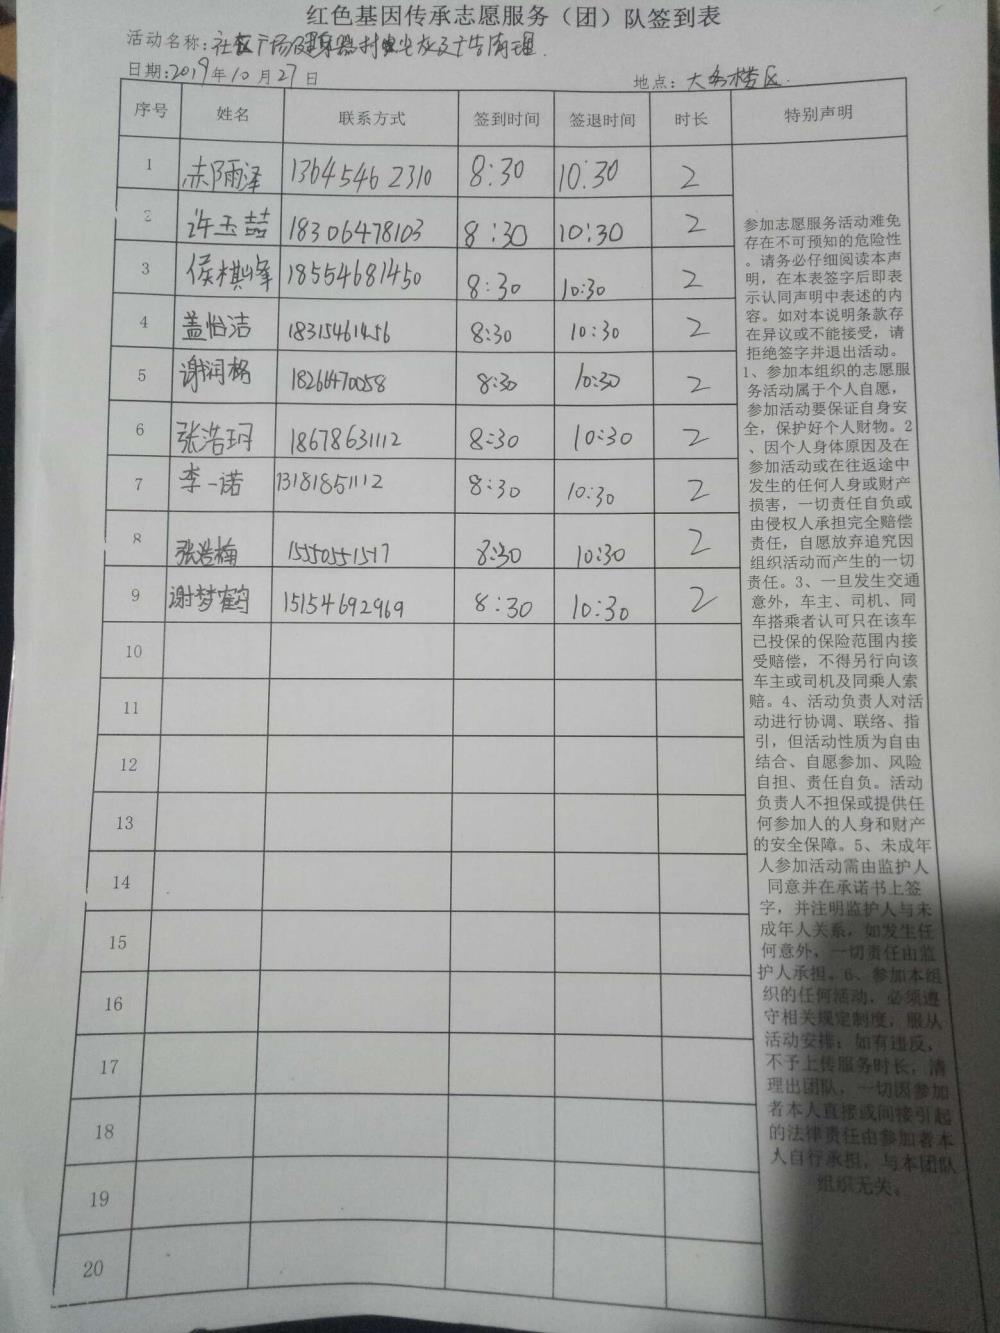 红色基因传承志愿服务（团）队签到表
活动名称：社区广场及
日期：2019年10月27日 地点：
序号 姓名 联系方式 签到时间 签退时间 时长 特别声明
1 赤阿雨泽 13645462310 8:30 10:30 2
2 许玉喆 18306478103 8:30 10:30 2
3 侯棋峰 18554681450 8:30 10:30 2
4 盖怡洁 18315461456 8:30 10:30 2
5 谢润格 1826470058 8:30 10:30 2
6 张浩玥 18678631112 8:30 10:30 2
7 李一诺 13181851112 8:30 10:30 2
8 张浩楠 15550551517 8:30 10:30 2
9 谢梦鹤 15154692969 8:30 10:30 2
10
11
12
13
14
15
16
17
18
19
20
参加志愿服务活动难免
存在不可预知的危险性
。请务必仔细阅读本声
明，在本表签字后即表
示认同声明中表述的内
容。如对本说明条款存
在异议或不能接受，请
拒绝签字并退出活动。
1、参加本组织的志愿服
务活动属于个人自愿，
参加活动要保证自身安
全，保护好个人财物。2
、因个人身体原因及在
参加活动或在往返途中
发生的任何人身或财产
损害，一切责任自负或
由侵权人承担完全赔偿
责任，自愿放弃追究因
组织活动而产生的一切
责任。3、一旦发生交通
意外，车主、司机、同
车搭乘者认可只在该车
已投保的保险范围内接
受赔偿，不得另行向该
车主或司机及同乘人索
赔。4、活动负责人对活
动进行协调、联络、指
引，但活动性质为自由
结合、自愿参加、风险
自担、责任自负。活动
负责人不担保或提供任
何参加人的人身和财产
的安全保障。5、未成年
人参加活动需由监护人
同意并在承诺书上签
字，并注明监护人与未
成年人关系，如发生任
何意外，一切责任由监
护人承担。6、参加本组
织的任何活动，必须遵
守相关规定制度，服从
活动安排；如有违反，
不予上传服务时长，清
理出团队，一切因参加
者本人直接或间接引起
的法律责任由参加者本
人自行承担，与本团队
组织无关。